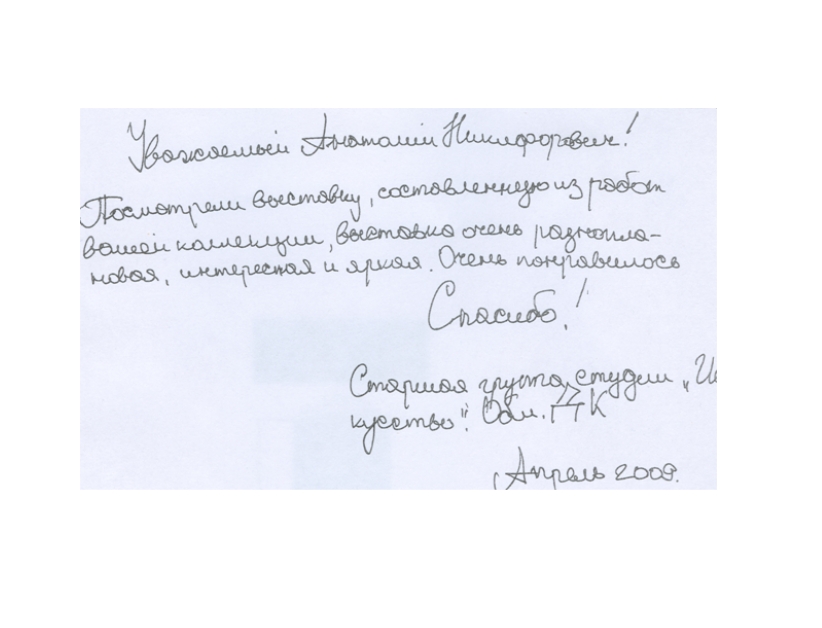 Уважаемый Анатолий Никифорович!
Посмотрели выставку, составленную из работ
вашей коллекции, выставка очень разнопла-
новая, интересная и яркая. Очень понравилось
Спасибо!
Старшая группа студии „Ис
кусство". Обл. ДК
Апрель 2009.